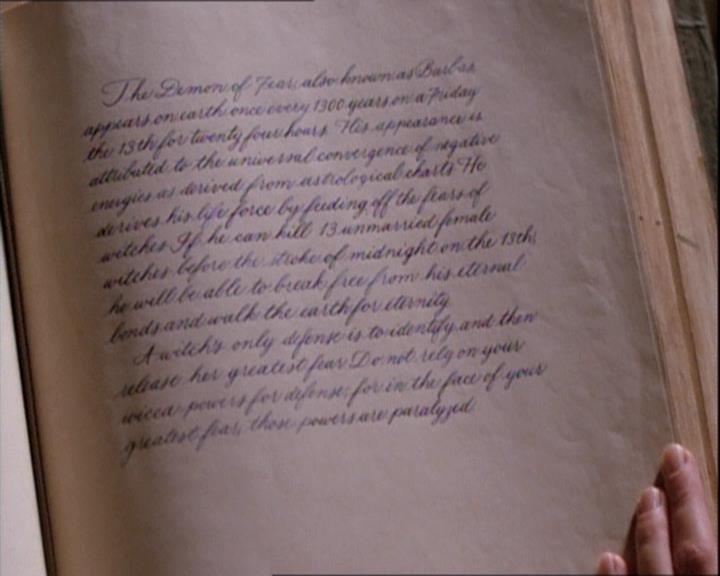 The Demon of Fear, also known as Barbas,
appears on earth once every 1300 years on a Friday
the 13th for twenty four hours. His appearance is
attributed to the universal convergence of negative
energies as derived from astrological charts He
derives his life force by feeding off the fears of
witches If he can kill 13 unmarried female
witches before the stroke of midnight on the 13th,
he will be able to break free from his eternal
bonds and walk the earth for eternity
A witch's only defense is to identify and then
release her greatest fear Do not rely on your
wicca powers for defense, for in the face of your
greatest fear, those powers are paralyzed